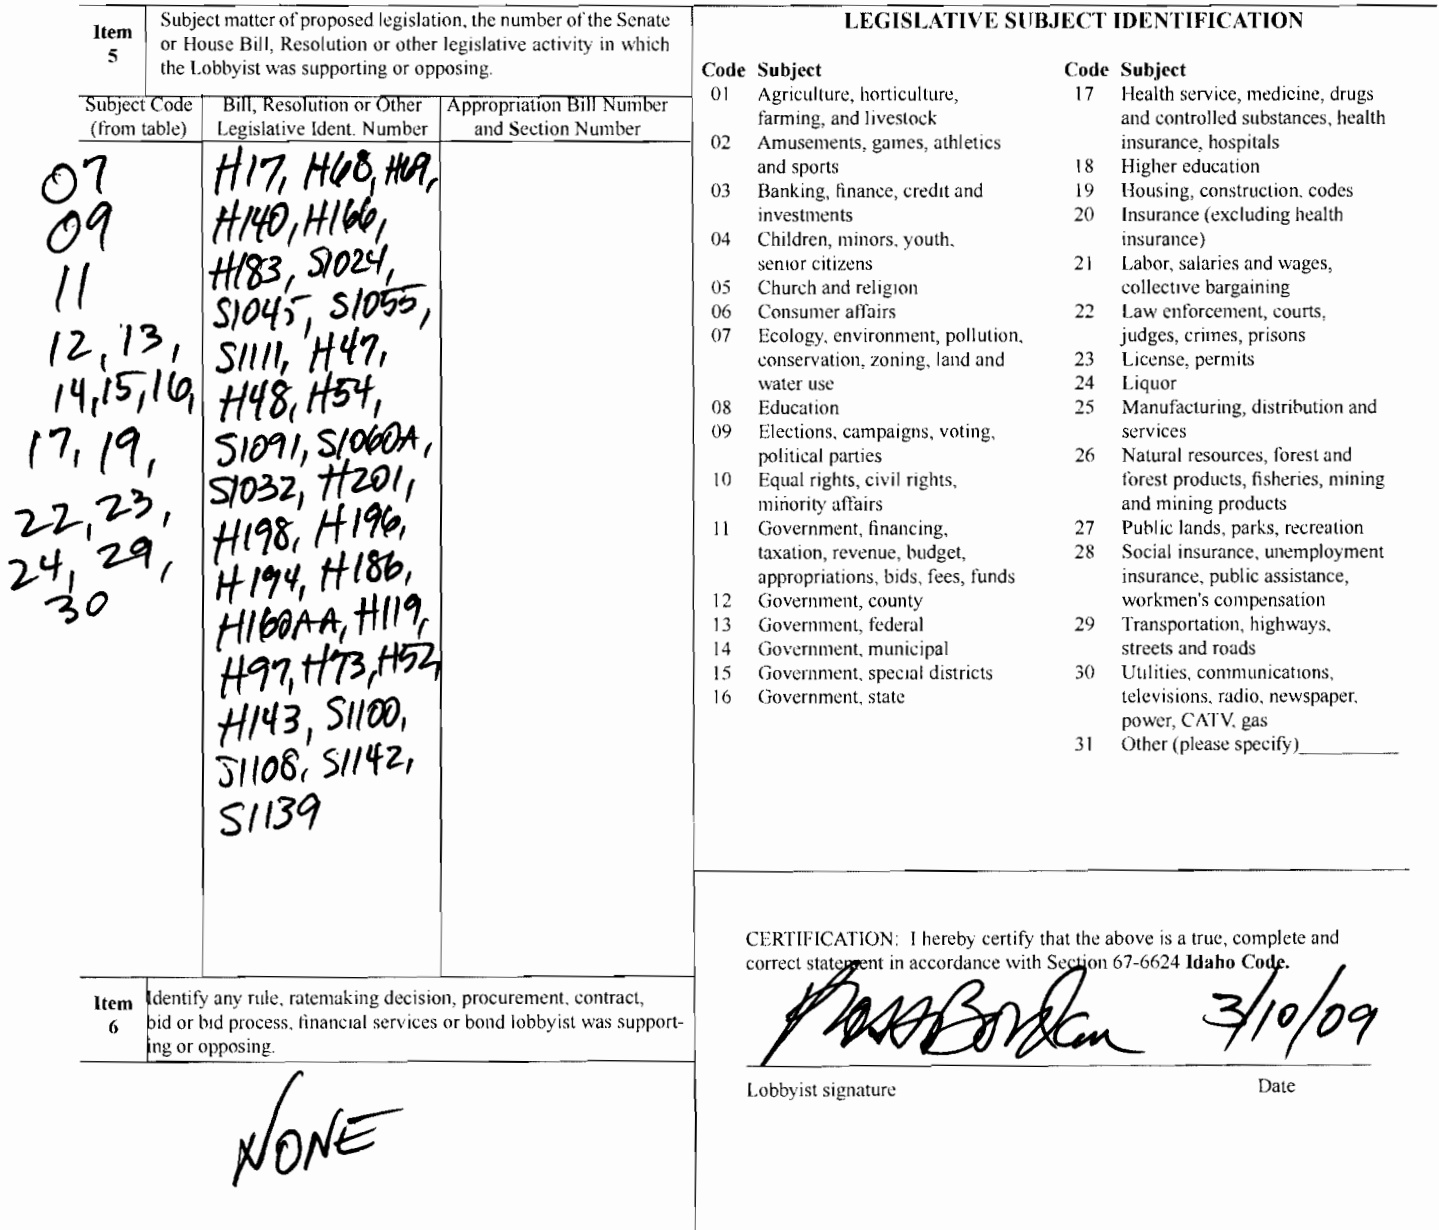 Item
5
Subject matter of proposed legislation, the number of the Senate
or House Bill, Resolution or other legislative activity in which
the Lobbyist was supporting or opposing.
Subject Code
(from table)
Bill, Resolution or Other
Legislative Ident. Number
Appropriation Bill Number
and Section Number
07
09
11
12, 13,
14,15,16,
17, 19,
22, 23,
24, 29,
30
H17, H68, H69,
H140, H166,
H183, S1024,
S1045, S1055,
S1111, H47,
H48, H54,
S1091, S1060A,
S1032, H201,
H198, H196,
H194, H186,
H160AA, H119,
H97, H73, H52,
H143, S1100,
S1108, S1142,
S1139
Item
6
Identify any rule, ratemaking decision, procurement, contract,
bid or bid process, financial services or bond lobbyist was support-
ing or opposing.
NONE
LEGISLATIVE SUBJECT IDENTIFICATION
Code Subject
01 Agriculture, horticulture,
farming, and livestock
02 Amusements, games, athletics
and sports
03 Banking, finance, credit and
investments
04 Children, minors, youth,
senior citizens
05 Church and religion
06 Consumer affairs
07 Ecology, environment, pollution,
conservation, zoning, land and
water use
08 Education
09 Elections, campaigns, voting,
political parties
10 Equal rights, civil rights,
minority affairs
11 Government, financing,
taxation, revenue, budget,
appropriations, bids, fees, funds
12 Government, county
13 Government, federal
14 Government, municipal
15 Government, special districts
16 Government, state
Code Subject
17 Health service, medicine, drugs
and controlled substances, health
insurance, hospitals
18 Higher education
19 Housing, construction, codes
20 Insurance (excluding health
insurance)
21 Labor, salaries and wages,
collective bargaining
22 Law enforcement, courts,
judges, crimes, prisons
23 License, permits
24 Liquor
25 Manufacturing, distribution and
services
26 Natural resources, forest and
forest products, fisheries, mining
and mining products
27 Public lands, parks, recreation
28 Social insurance, unemployment
insurance, public assistance,
workmen's compensation
29 Transportation, highways,
streets and roads
30 Utilities, communications,
televisions, radio, newspaper,
power, CATV, gas
31 Other (please specify)__________
CERTIFICATION: I hereby certify that the above is a true, complete and
correct statement in accordance with Section 67-6624 Idaho Code.
3/10/09
Lobbyist signature
Date